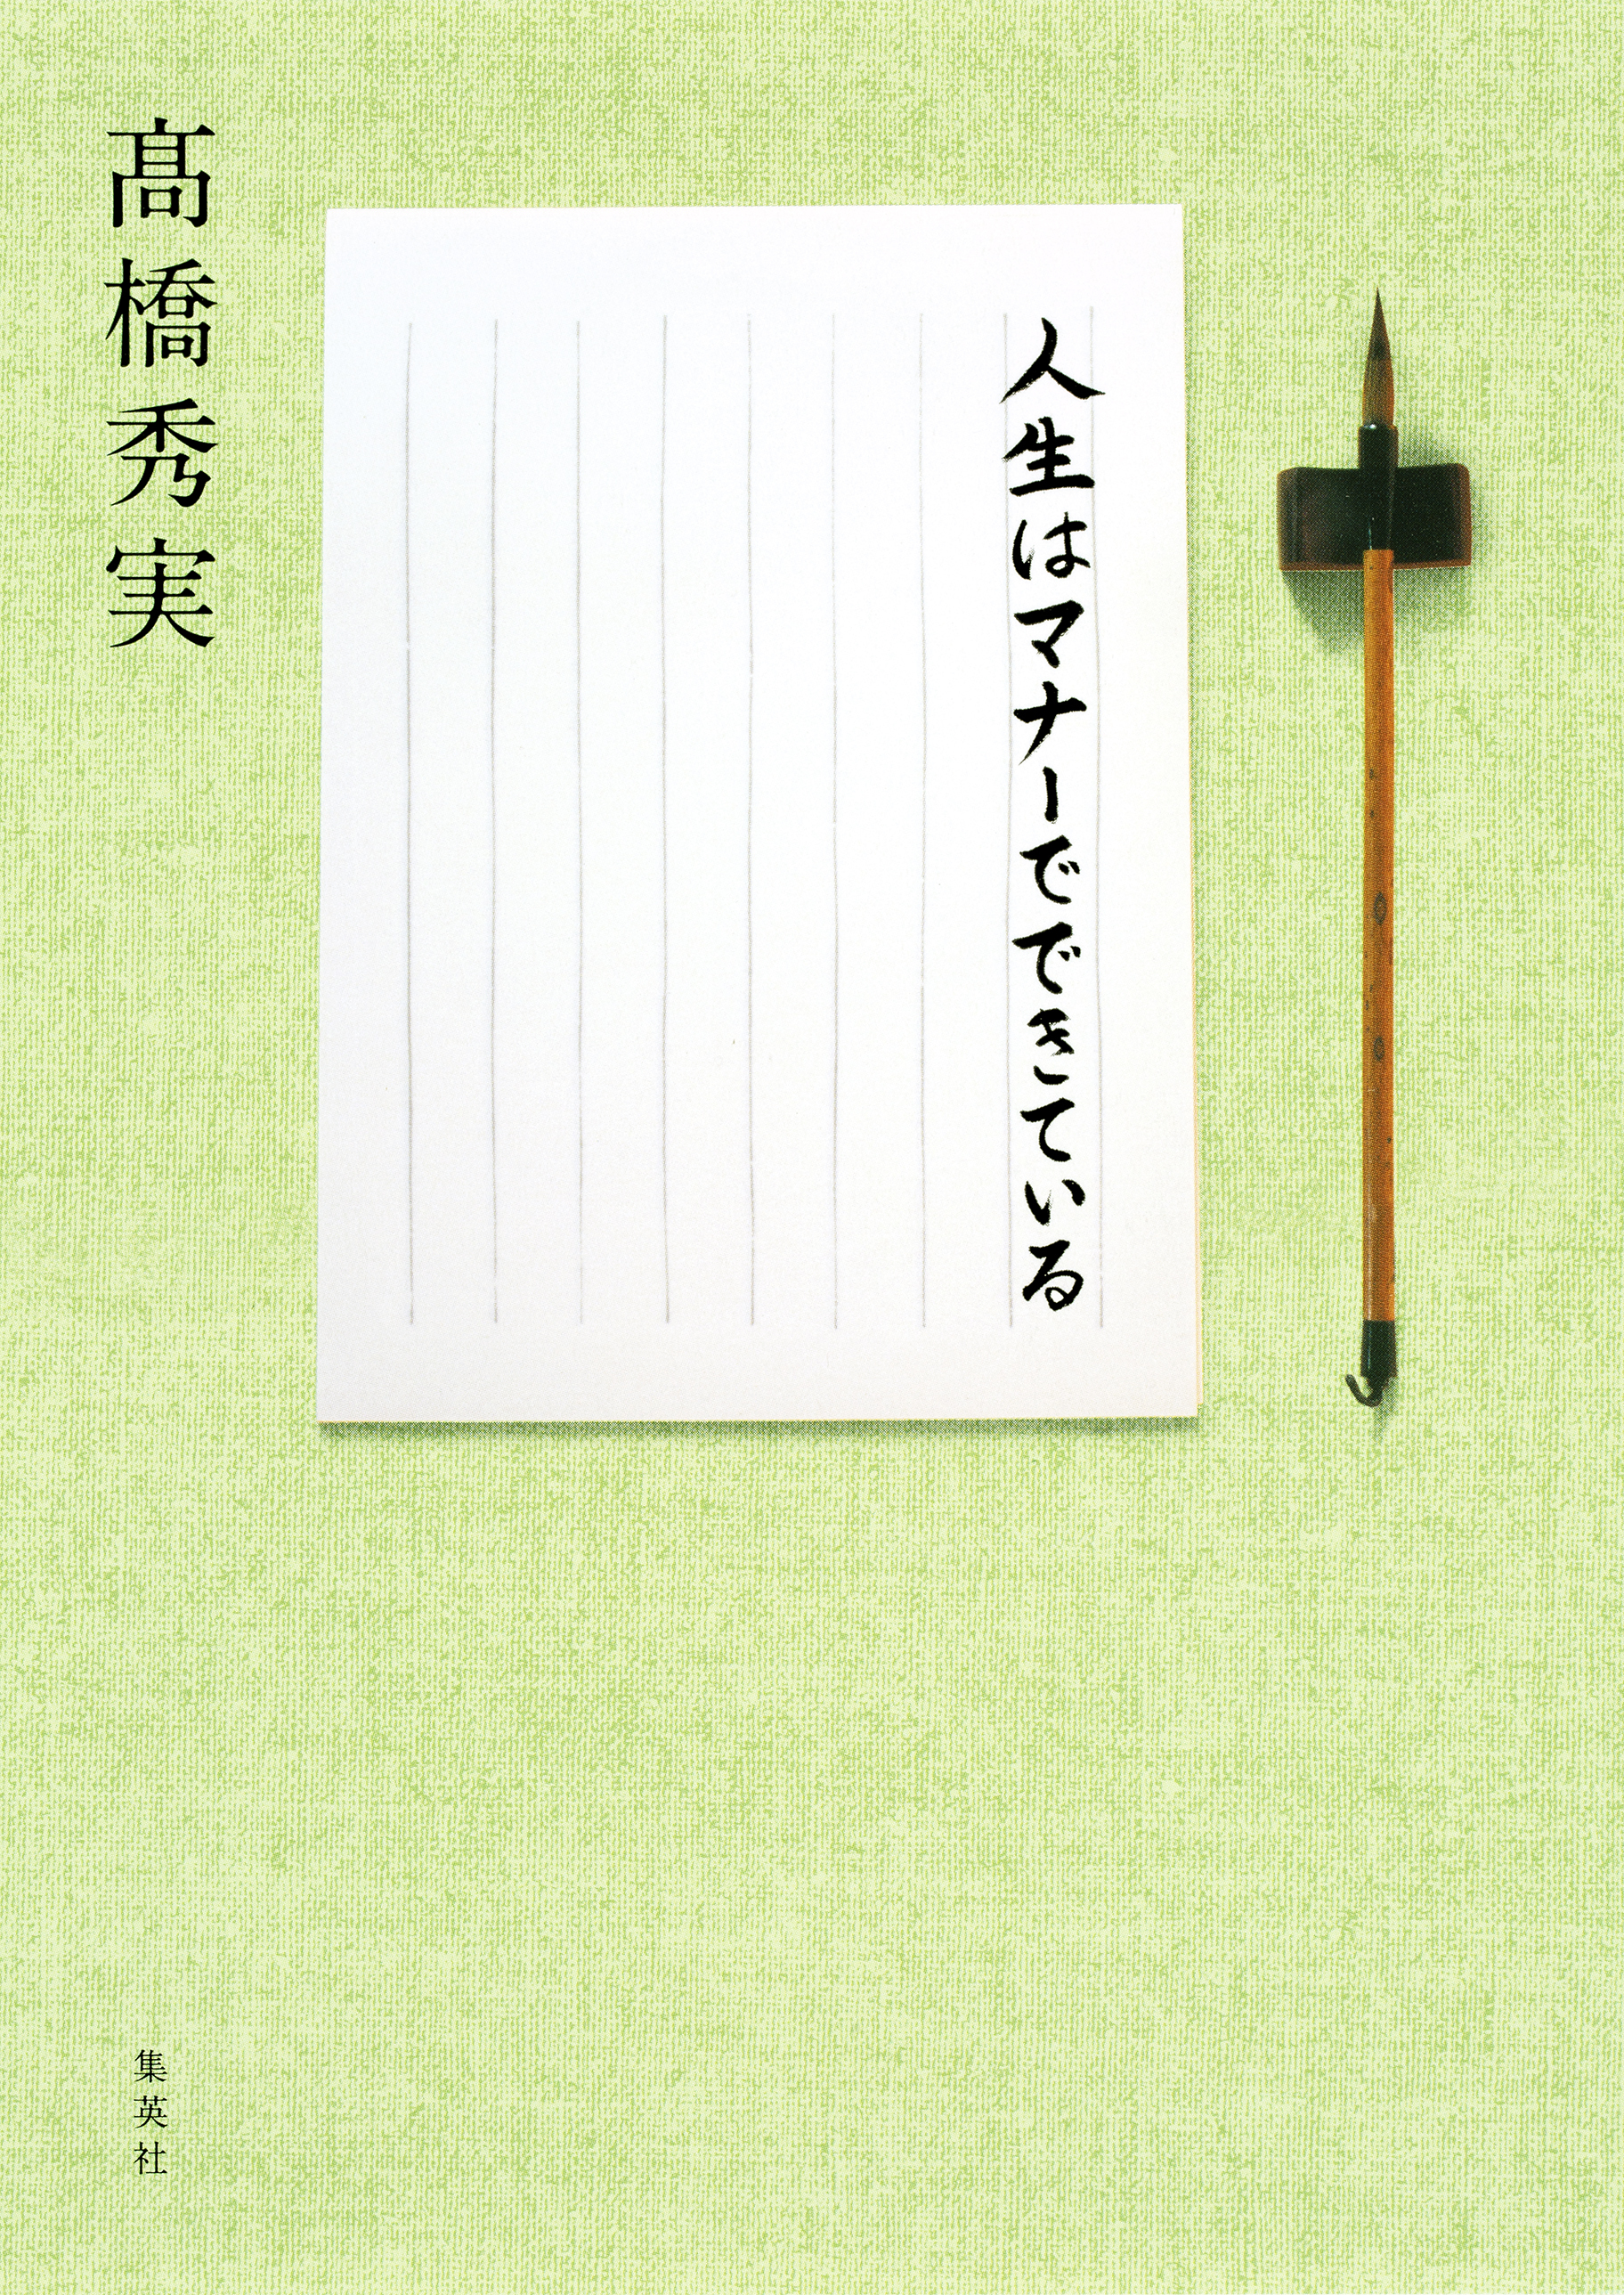 人生はマナーでできている
髙橋秀実
集英社